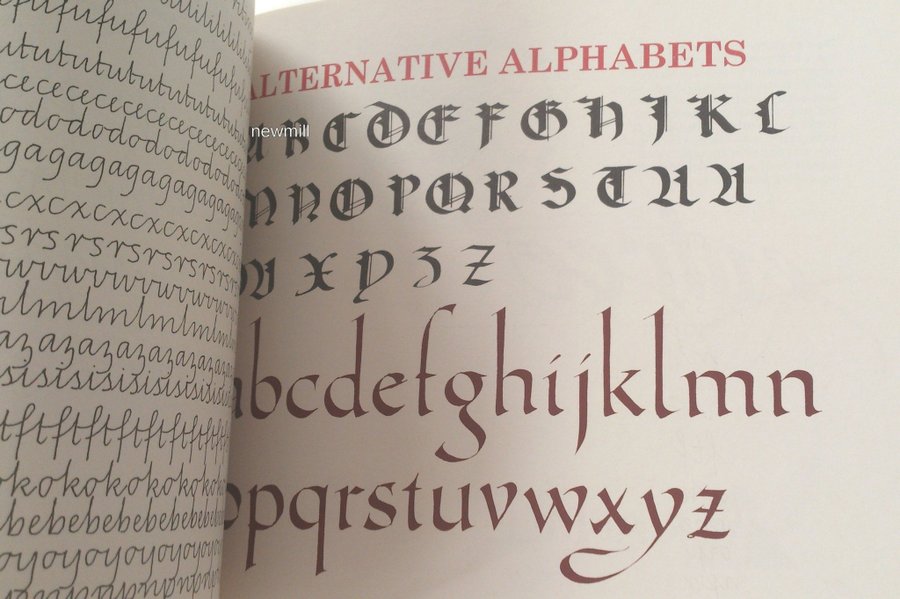 fufufufufufufu
utututututututu
cecececececece
odododododododo
gagagagagagagaga
cxcxcxcxcxcxc
srsrsrsrsrsrsrs
wvwvwvwvwvwvwv
lmlmlmlmlmlmlm
azazazazazazaza
sisisisisisisisisi
tftftftftftftftf
okokokokokokoko
bebebebebebebebe
oyoyoyoyoyoyoyo
ALTERNATIVE ALPHABETS
newmill
A B C D E F G H I K L
M N O P Q R S T U U
W X Y Z Z
abcdefghijklmn
opqrstuvwxyz